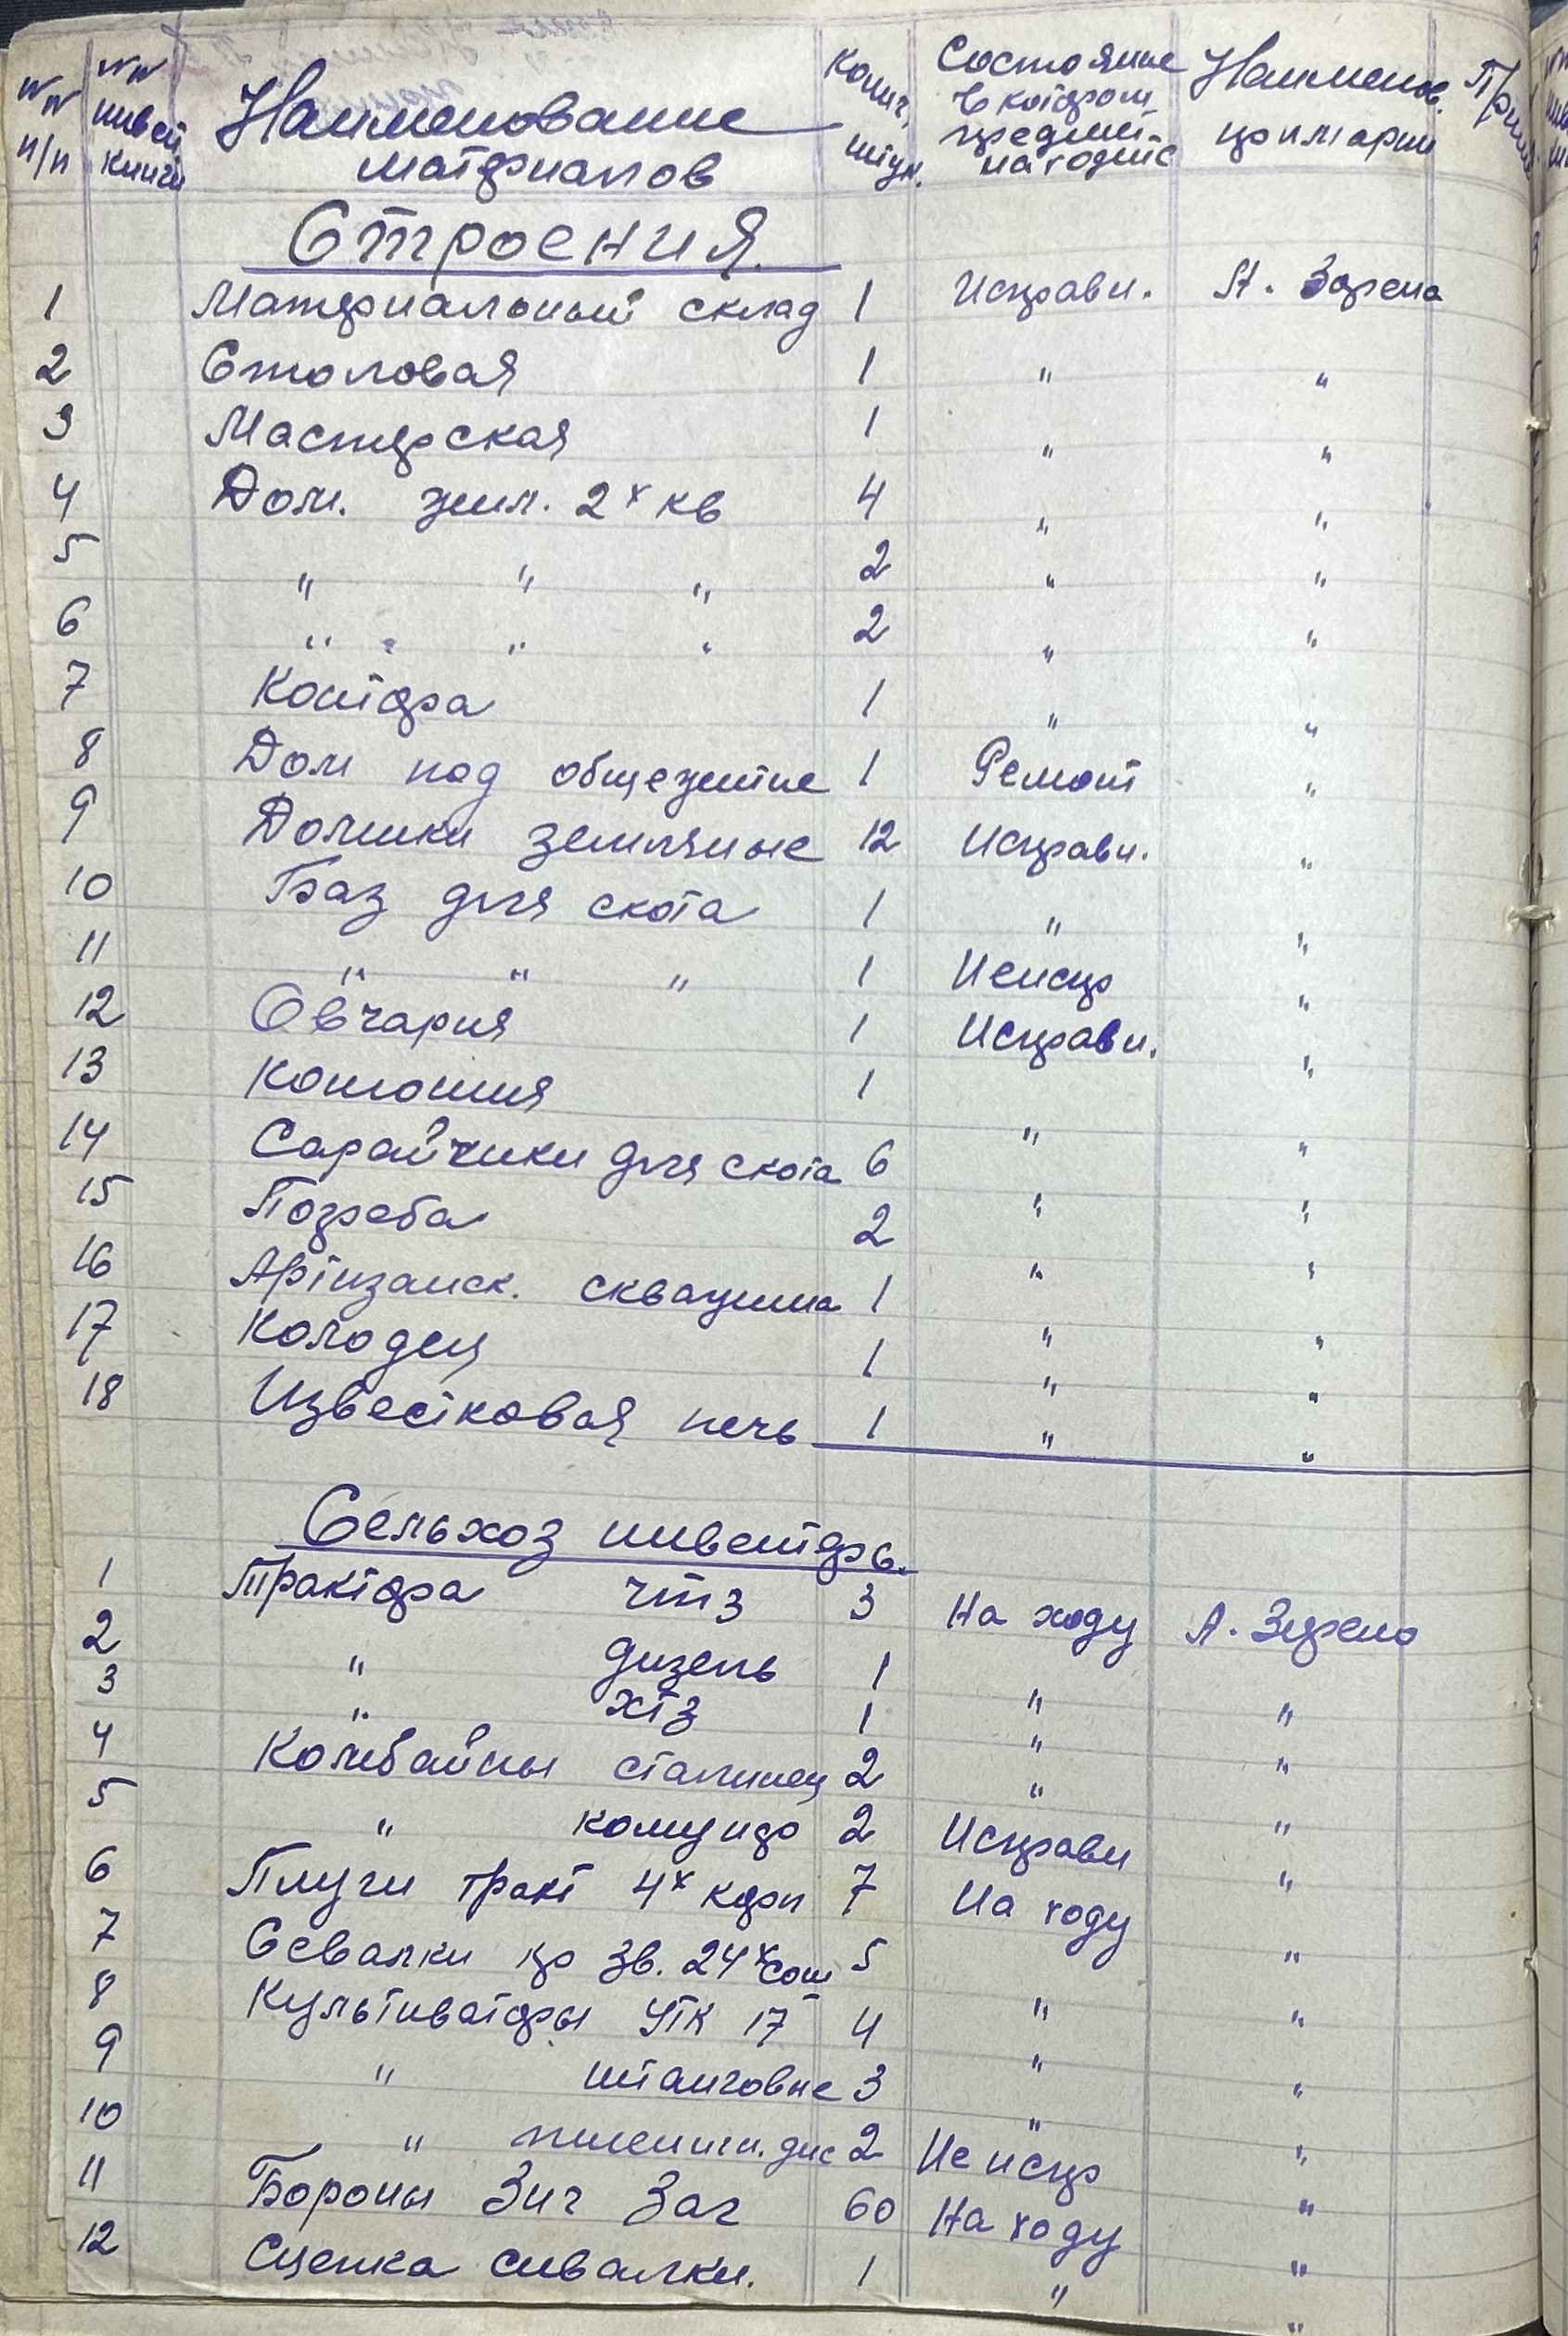 №№ п/п №№ инвен книги Наименование материалов Колич. штук. Состояние в котором предмет находится Наименов.
Строения.
1 Материальный склад 1 Исправн.
2 Столовая 1 " "
3 Мастерская 1 " "
4 Дом. жил. 2х кв 4 " "
5 " " " 2 " "
6 " " " 2 " "
7 Контора 1 " "
8 Дом под общежитие 1 Ремонт "
9 Домики земляные 12 Исправн. "
10 Баз для скота 1 " "
11 " " " 1 Неиспр "
12 Овчарня 1 Исправн. "
13 Конюшня 1 " "
14 Сарайчики для скота 6 " "
15 Погреба 2 " "
16 Артизанск. скважина 1 " "
17 Колодец 1 " "
18 Известковая печь 1 " "
Сельхоз инвентарь.
1 Трактора ЧТЗ 3 На ходу
2 " дизель 1 " "
3 " ХТЗ 1 " "
4 Комбайны сталинец 2 " "
5 " комунар 2 Исправн "
6 Плуги тракт 4х корп 7 На ходу "
7 Сеялки 24х сош 5 " "
8 Культиваторы УТК 17 4 " "
9 " штанговые 3 " "
10 " дис 2 Не испр "
11 Бороны Зиг Заг 60 На ходу "
12 Сцепка сивалки. 1 " "